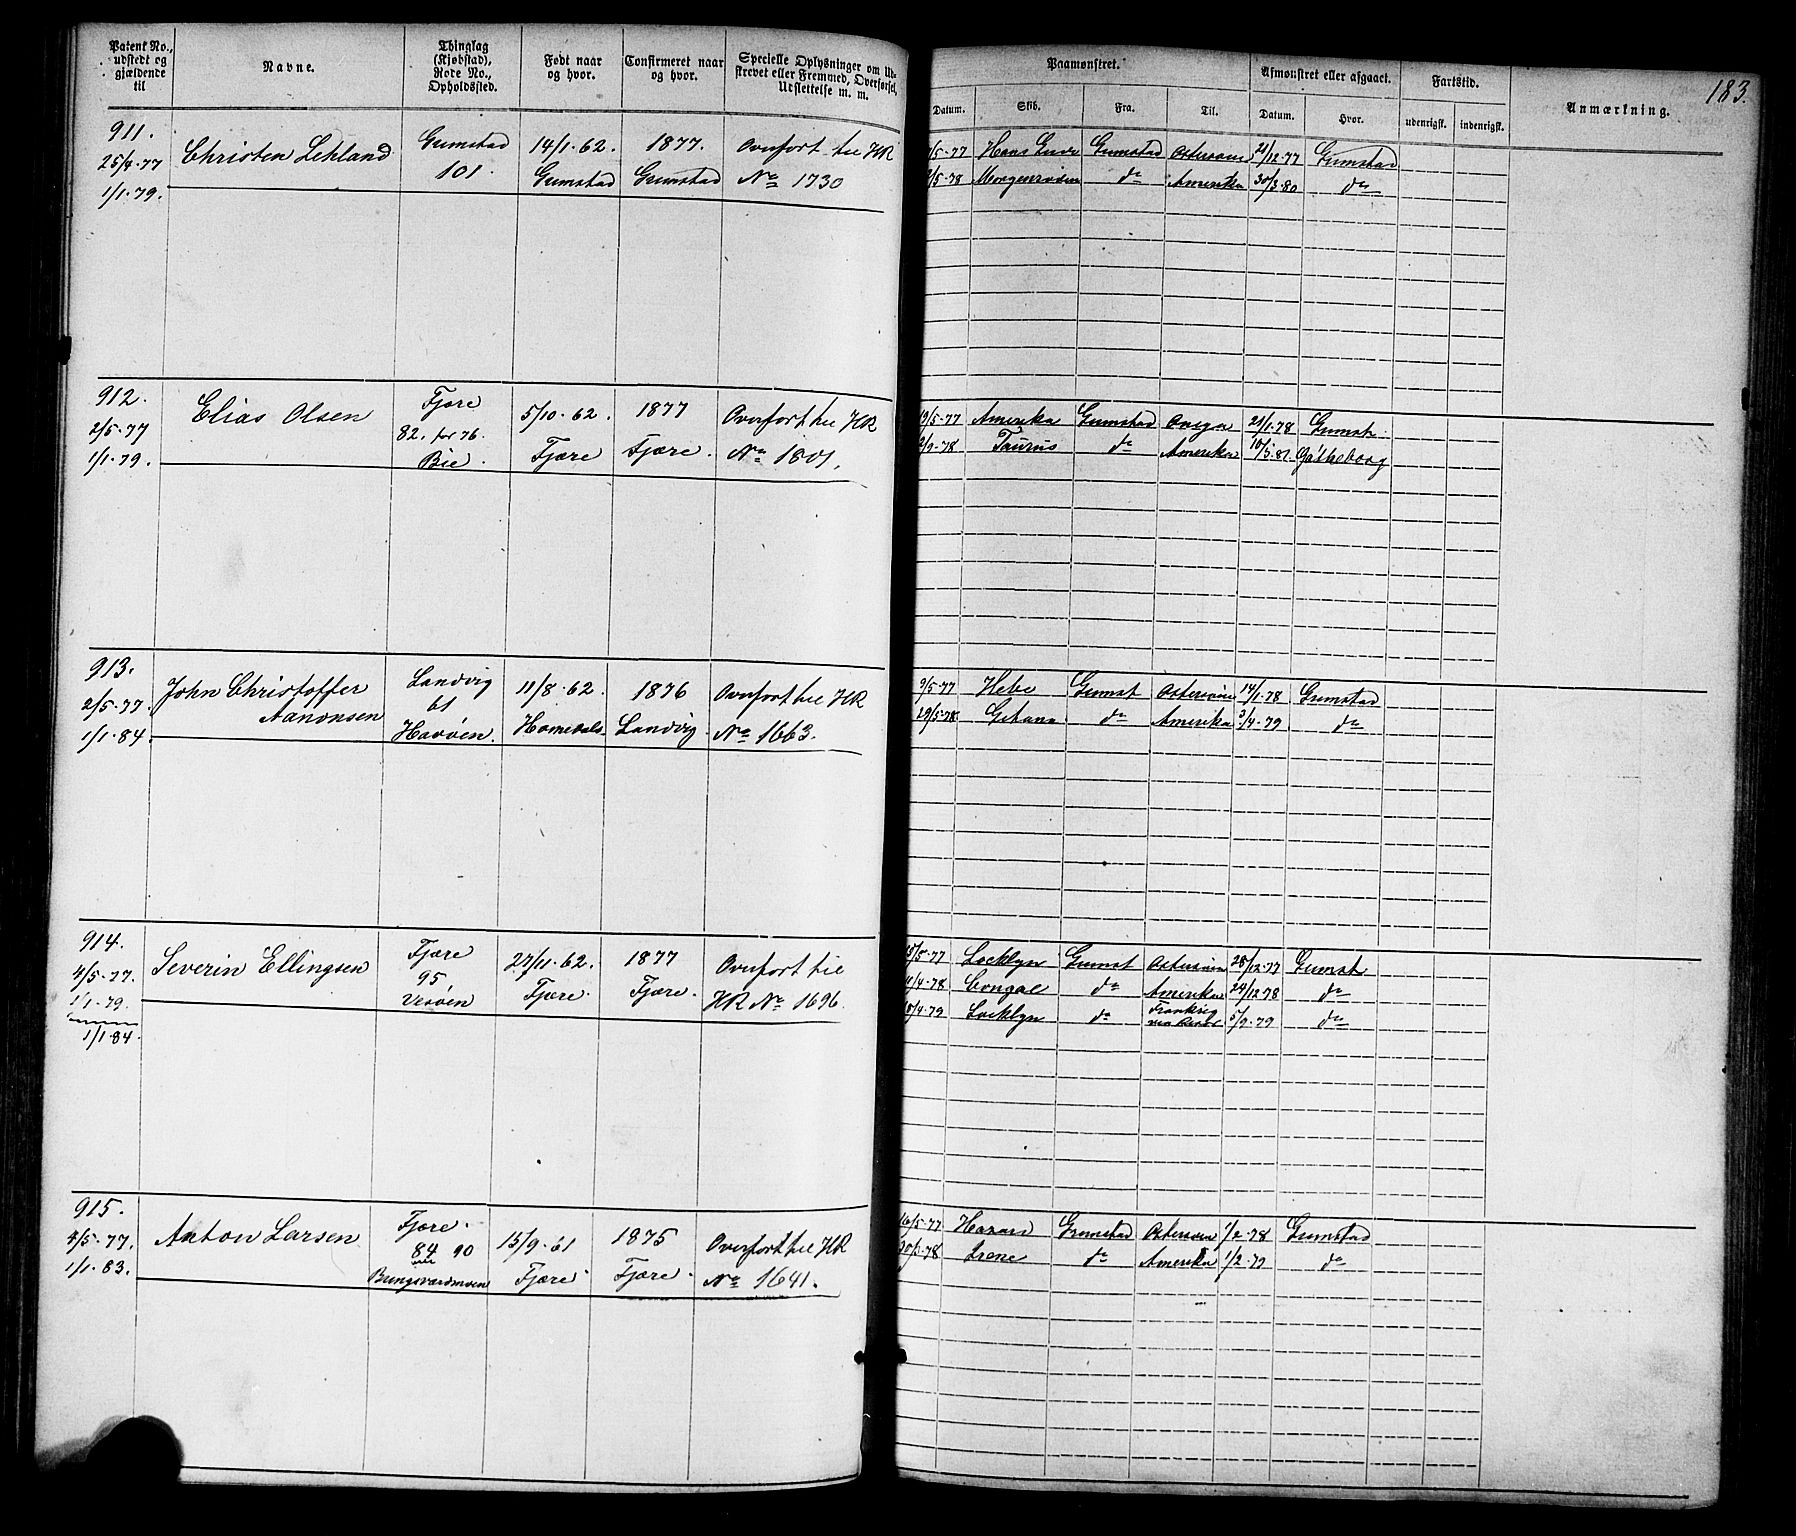 Patent No., udstedt og gjældende til
Navne.
Thinglag (Kjøbstad), Rode No., Opholdssted.
Født naar og hvor.
Confirmeret naar og hvor.
Specielle Oplysninger om Udstrevet eller Fremmed, Overførsel, Udslettelse m. m.
Paamønstret.
Afmønstret eller afgaaet.
Fartstid.
Anmærkning.
183.
Datum. Skib. Fra. Til. Datum. Hvor. udenrigsk. indenrigsk.
911.
25/4-77
1/1-79.
Christen Lehland
Grimstad
101.
14/1-62.
Grimstad
1877.
Grimstad
Overført til HR
No 1730
/5-77 Hans Grimstad Østersøen 21/12-77 Grimstad
/5-78 Morgenrøden do Amerika 30/3-80 do
912.
2/5-77
1/1-79.
Elias Olsen
Fjære
82. for 76.
Bie.
5/10-62.
Fjære
1877
Fjære.
Overført til HR
No 1801.
19/5-77 Amerika Grimstad 21/1-78 Grimst.
2/9-78 Taurus do Amerika 10/5-81 Gøtheborg
913.
2/5-77.
1/1-84.
John Christoffer
Aanonsen
Landvig
61
Havøen.
11/8-62.
Homedals
1876
Landvig
Overført til HR
No 1663.
9/5-77 Hebe Grimst Østersøen 14/1-78 Grimstad
29/5-78 Gitana do Amerika 3/4-79 do
914.
4/5-77.
1/1-79.
1/1-84.
Severin Ellingsen
Fjære
95
Vessøen
27/11-62.
Fjære.
1877
Fjære.
Overført til
HR No 1696.
15/5-77 Locklyn Grimst Østersøen 28/12-77 Grimst
11/4-78 Congal do Amerika 24/12-78 do
18/4-79 Locklyn do Frankrig 5/9-79 do
915.
5/5-77.
1/1-83.
Anton Larsen
Fjære.
84 90
Bringsværdmoen
15/9-61
Fjære.
1875
Fjære.
Overført til HR
No 1641.
16/5-77 Hazard Grimstad Østersøen 1/2-78 Grimstad
30/-78 Irene do Amerika 1/2-79 do